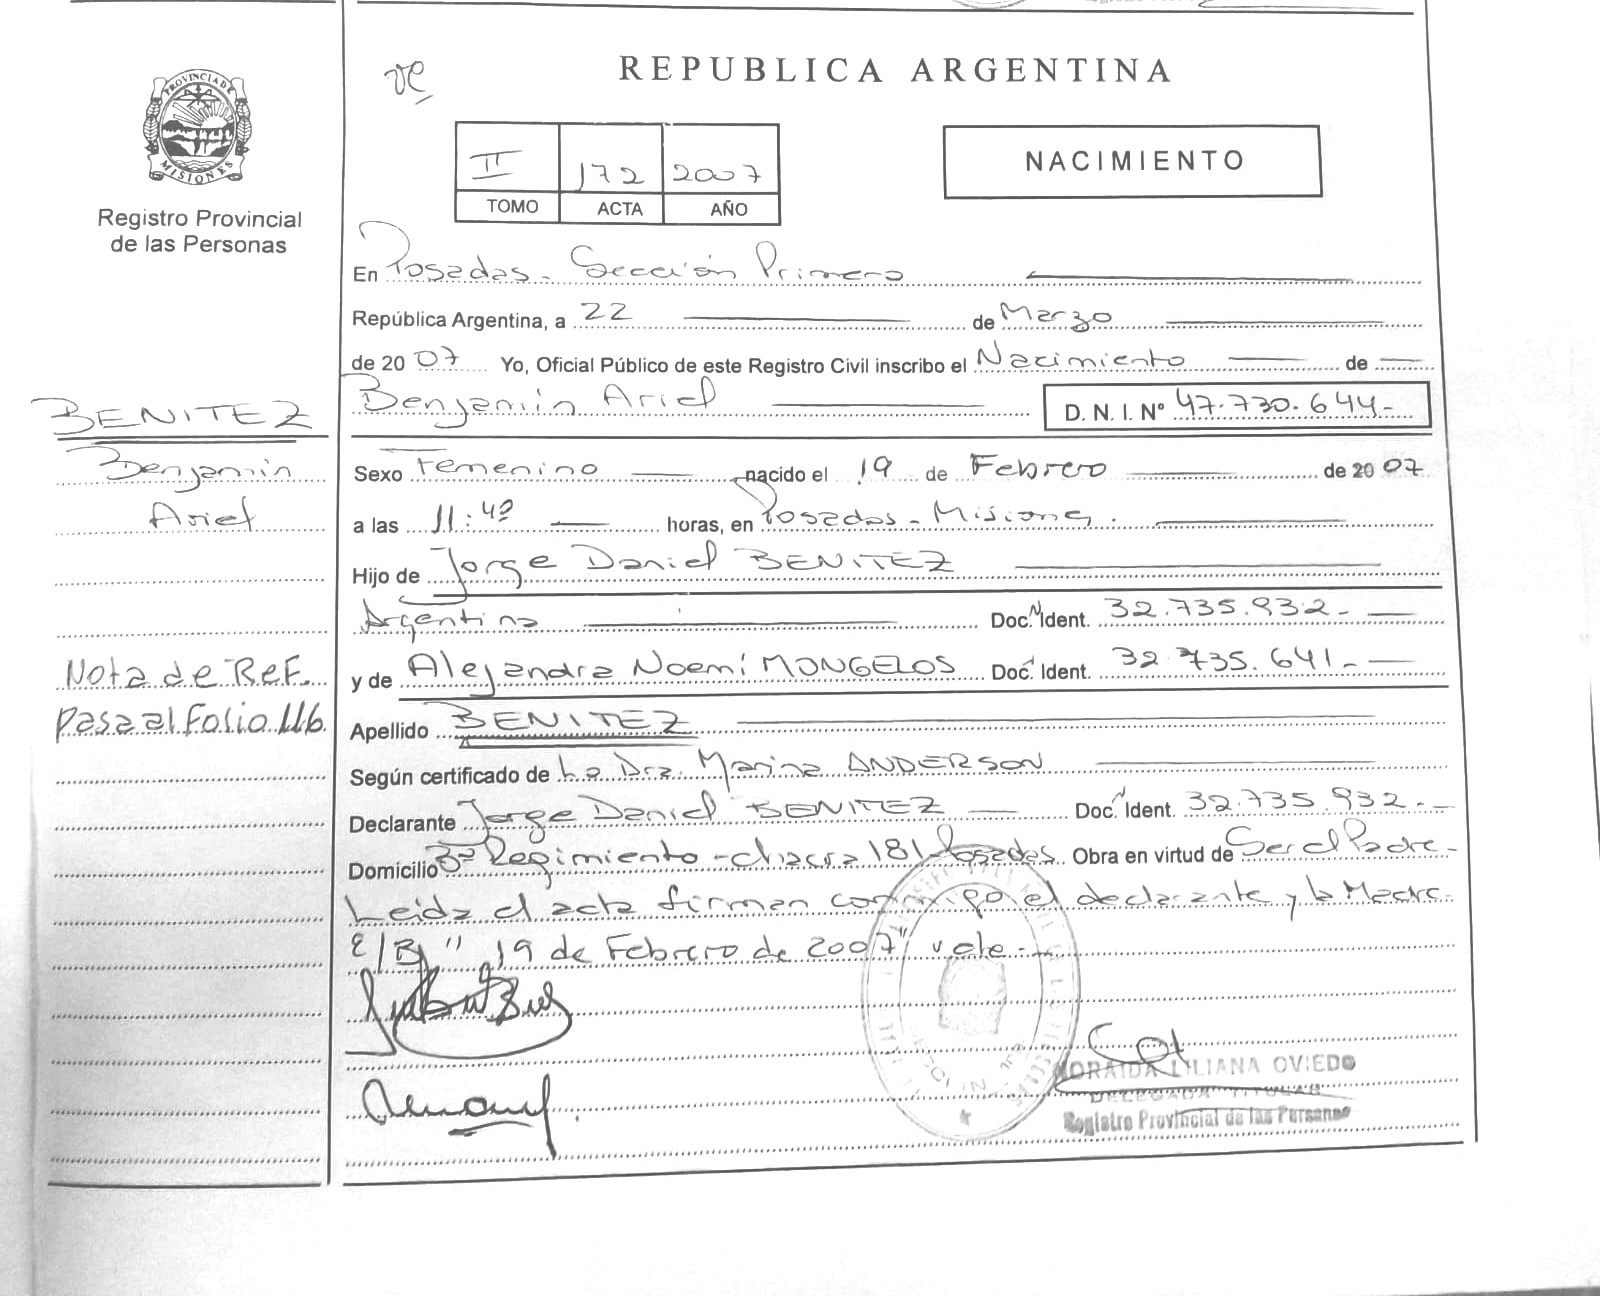 REPUBLICA ARGENTINA
PROVINCIA DE
MISIONES
Registro Provincial
de las Personas
II 172 2007
TOMO ACTA AÑO
NACIMIENTO
En Posadas - Sección Primera
República Argentina, a 22 de Marzo
de 2007 Yo, Oficial Público de este Registro Civil inscribo el Nacimiento de
Benjamín Ariel D. N. I. Nº 47.730.644-
BENITEZ
Benjamín
Ariel
Nota de Ref.
Pasa al Folio 116
Sexo Femenino nacido el 19 de Febrero de 2007
a las 11:42 horas, en Posadas - Misiones.
Hijo de Jorge Daniel BENITEZ
Argentina Doc. Ident. 32.735.932-
y de Alejandra Noemí MONGELOS Doc. Ident. 32.735.641-
Apellido BENITEZ
Según certificado de La Dra. Marina ANDERSON
Declarante Jorge Daniel BENITEZ Doc. Ident. 32.735.932-
Domicilio 3º Regimiento - chacra 181 - Posadas. Obra en virtud de Ser el Padre -
Leida el acta firman conmigo el declarante y la Madre
E/B " 19 de Febrero de 2007" vale -
MORAIDA LILIANA OVIEDO
DELEGADA TITULAR
Registro Provincial de las Personas